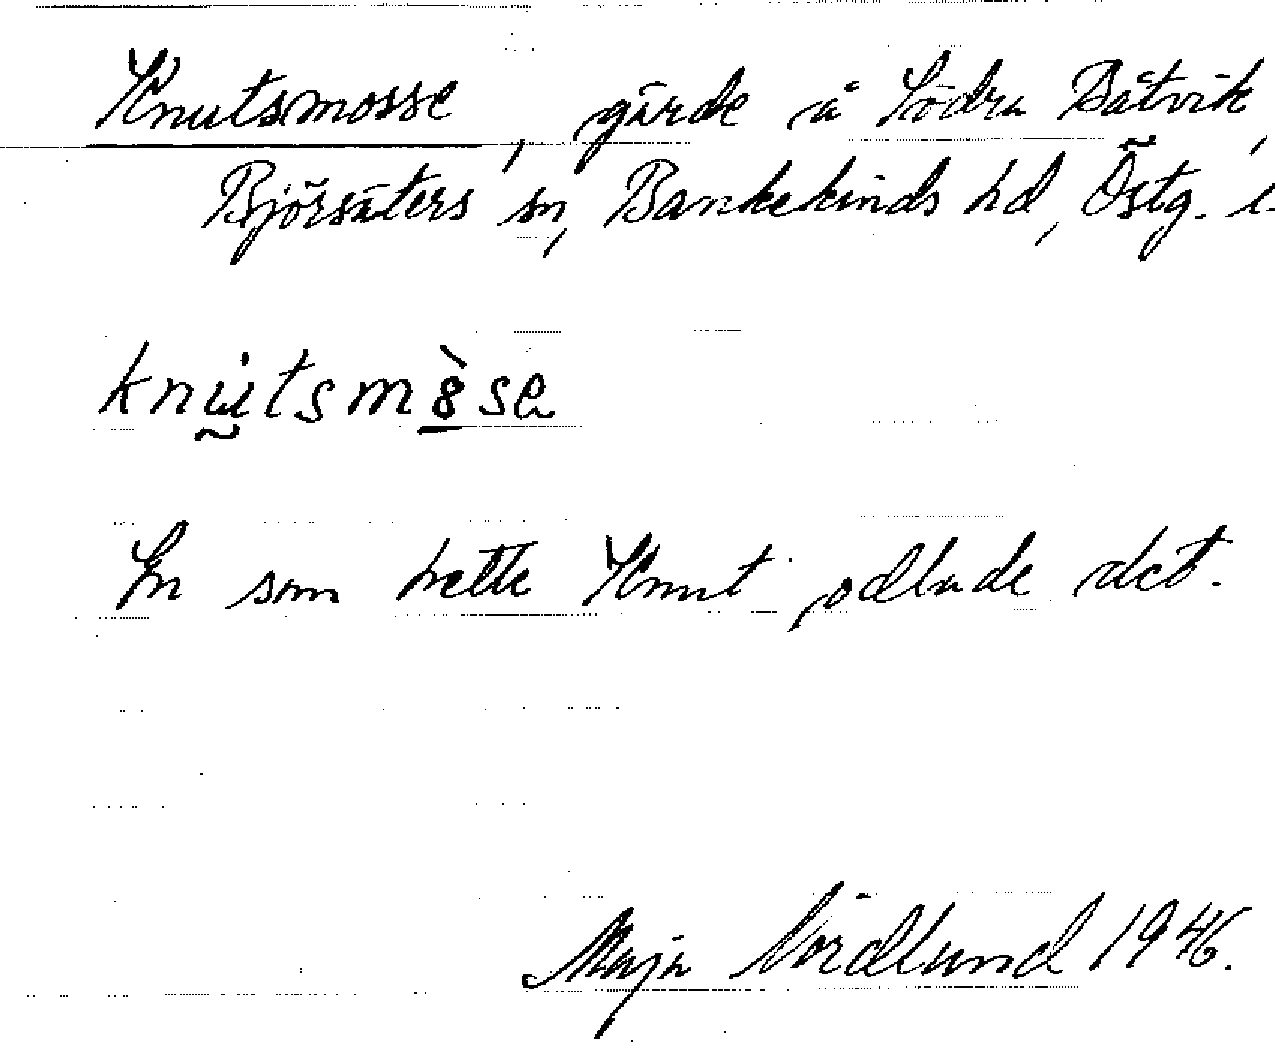 Knutsmosse, gärde å Södra Båtvik,
Björsäters sn, Bankekinds hd, Östg.
En som hette Knut odlade det.
Maja Nordlund 1946.